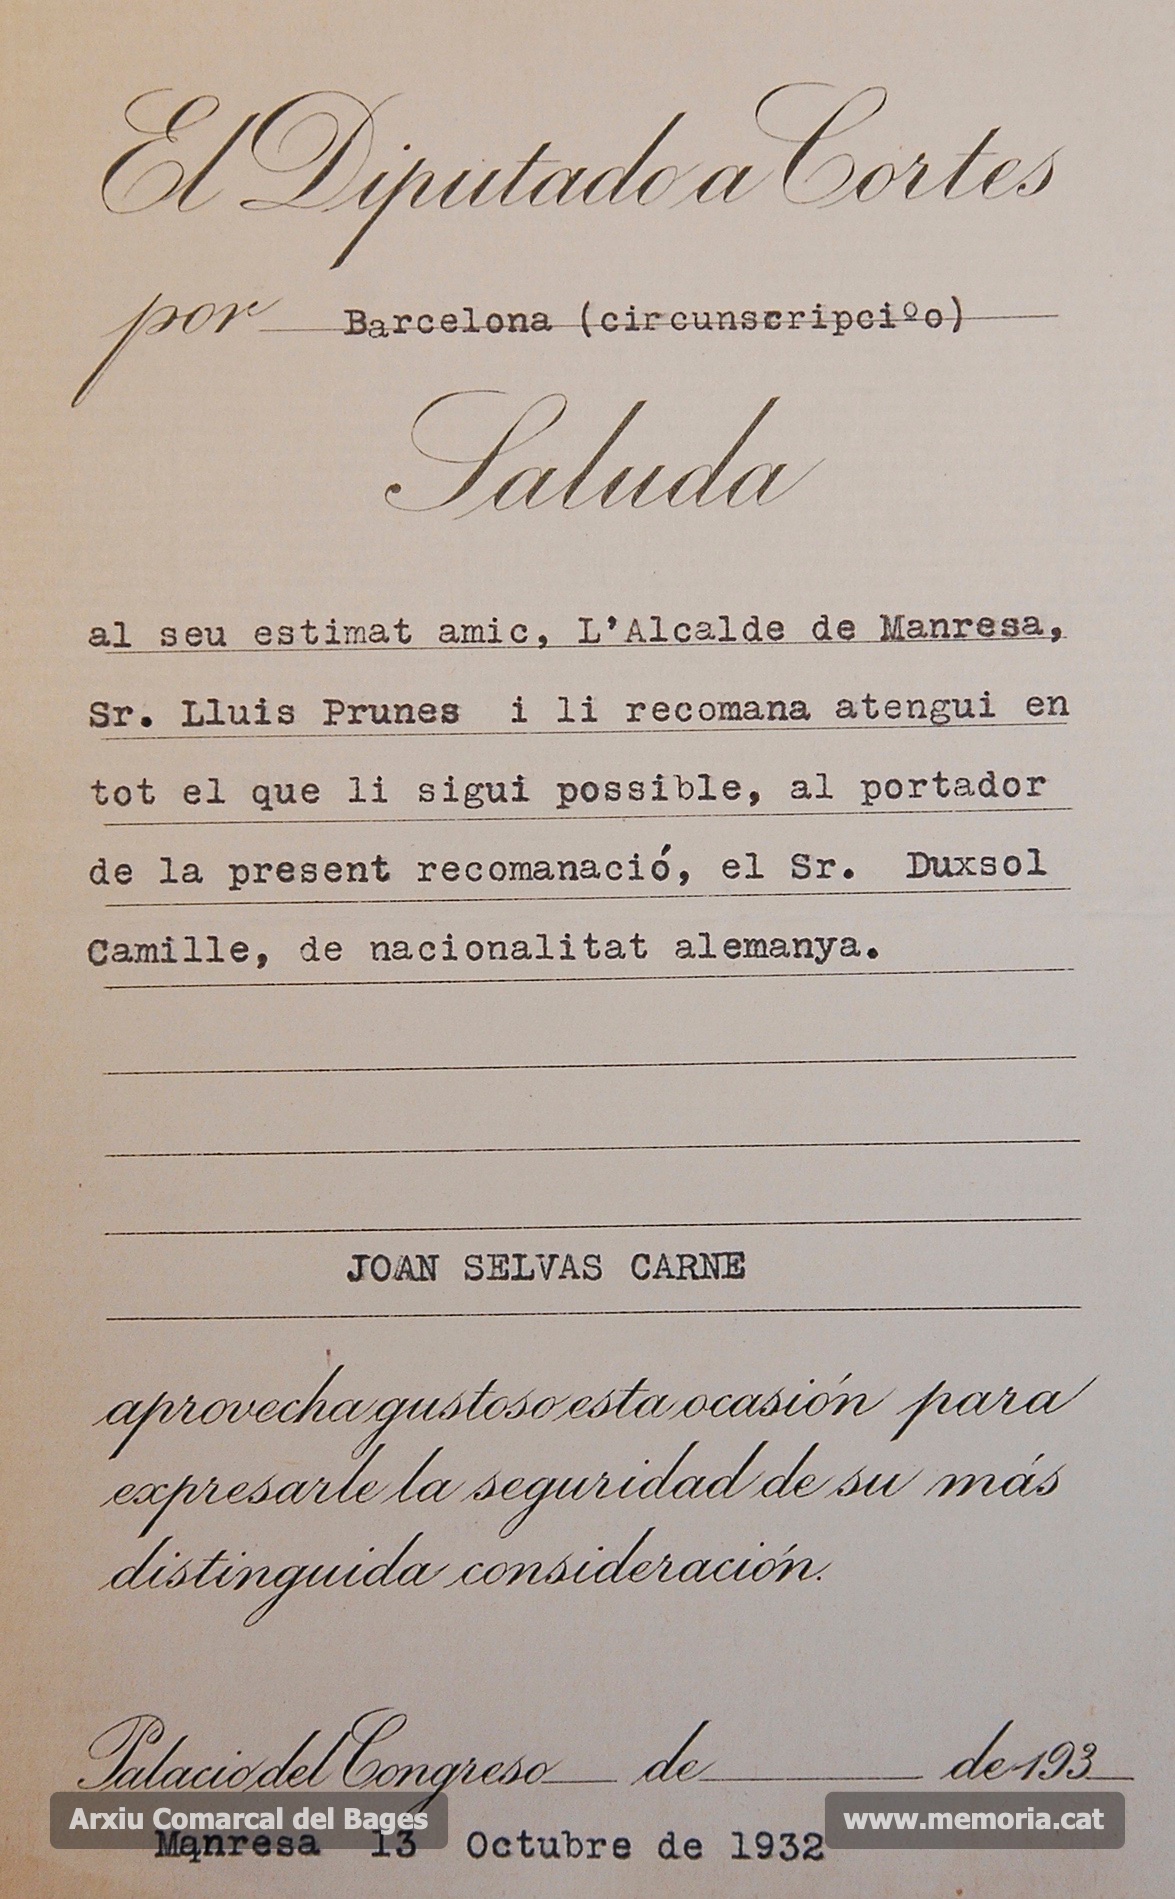 El Diputado a Cortes
por Barcelona (circunscripciºo)
Saluda
al seu estimat amic, L'Alcalde de Manresa,
Sr. Lluis Prunes i li recomana atengui en
tot el que li sigui possible, al portador
de la present recomanació, el Sr. Duxsol
Camille, de nacionalitat alemanya.
JOAN SELVAS CARNE
aprovecha gustoso esta ocasión para
expresarle la seguridad de su más
distinguida consideración.
Palacio del Congreso de de 193
Arxiu Comarcal del Bages www.memoria.cat
Manresa 13 Octubre de 1932